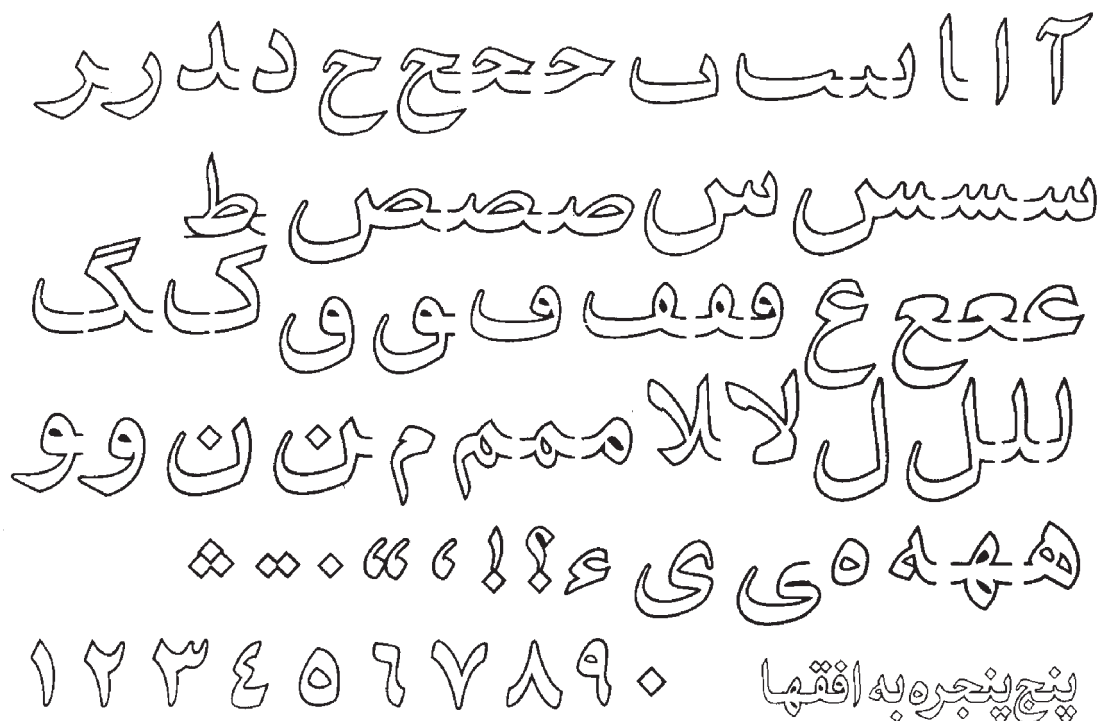 آ ا ـا ٮٮٮ ٮ ححح ح د ـد ر ـر
سسس س صصص ط
ععع ع ڡڡڡ ڡ ـٯ ٯ ک گ
للل ل لا ـلا ممم م ـن ن و ـو
ههه ه ـی ی ء ؟ ! ، “ . .. ∴
١ ٢ ٣ ٤ ٥ ٦ ٧ ٨ ٩ ٠
پنج پنجره به افقها